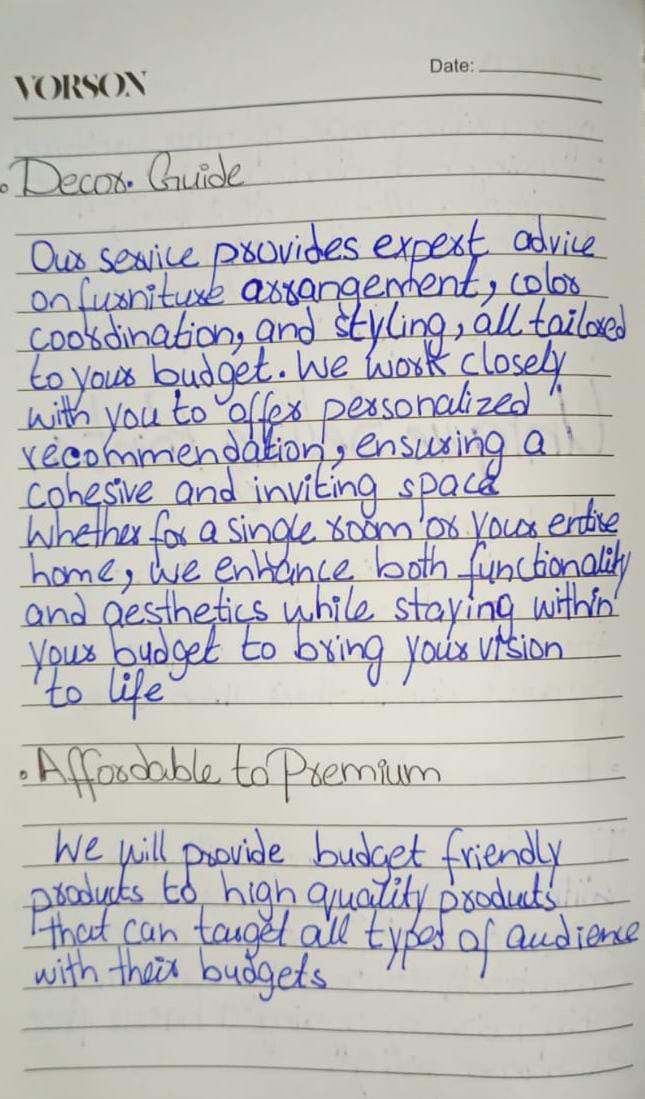 VORSON
Date:
Decor. Guide
Our service provides expert advice
on furniture arrangement, color
coordination, and styling, all tailored
to your budget. We work closely
with you to offer personalized
recommendation, ensuring a
cohesive and inviting space
Whether for a single room or your entire
home, we enhance both functionality
and aesthetics while staying within
your budget to bring your vision
to life
Affordable to Premium
We will provide budget friendly
products to high quality products
that can target all types of audience
with their budgets